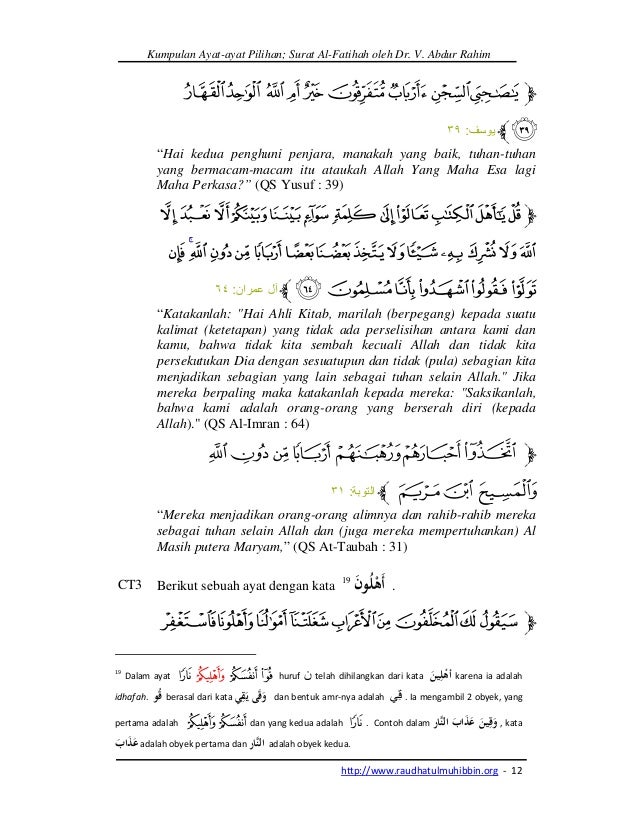 Kumpulan Ayat-ayat Pilihan; Surat Al-Fatihah oleh Dr. V. Abdur Rahim
﴿ يَٰصَٰحِبَىِ ٱلسِّجْنِ ءَأَرْبَابٌ مُّتَفَرِّقُونَ خَيْرٌ أَمِ ٱللَّهُ ٱلْوَٰحِدُ ٱلْقَهَّارُ
۝٣٩ ﴾ يوسف: ٣٩
“Hai kedua penghuni penjara, manakah yang baik, tuhan-tuhan
yang bermacam-macam itu ataukah Allah Yang Maha Esa lagi
Maha Perkasa?” (QS Yusuf : 39)
﴿ قُلْ يَٰٓأَهْلَ ٱلْكِتَٰبِ تَعَالَوْا۟ إِلَىٰ كَلِمَةٍ سَوَآءٍۭ بَيْنَنَا وَبَيْنَكُمْ أَلَّا نَعْبُدَ إِلَّا
ٱللَّهَ وَلَا نُشْرِكَ بِهِۦ شَيْـًٔا وَلَا يَتَّخِذَ بَعْضُنَا بَعْضًا أَرْبَابًا مِّن دُونِ ٱللَّهِ ۚ فَإِن
تَوَلَّوْا۟ فَقُولُوا۟ ٱشْهَدُوا۟ بِأَنَّا مُسْلِمُونَ ۝٦٤ ﴾ آل عمران: ٦٤
“Katakanlah: "Hai Ahli Kitab, marilah (berpegang) kepada suatu
kalimat (ketetapan) yang tidak ada perselisihan antara kami dan
kamu, bahwa tidak kita sembah kecuali Allah dan tidak kita
persekutukan Dia dengan sesuatupun dan tidak (pula) sebagian kita
menjadikan sebagian yang lain sebagai tuhan selain Allah." Jika
mereka berpaling maka katakanlah kepada mereka: "Saksikanlah,
bahwa kami adalah orang-orang yang berserah diri (kepada
Allah)." (QS Al-Imran : 64)
﴿ ٱتَّخَذُوٓا۟ أَحْبَارَهُمْ وَرُهْبَٰنَهُمْ أَرْبَابًا مِّن دُونِ ٱللَّهِ
وَٱلْمَسِيحَ ٱبْنَ مَرْيَمَ ﴾ التوبة: ٣١
“Mereka menjadikan orang-orang alimnya dan rahib-rahib mereka
sebagai tuhan selain Allah dan (juga mereka mempertuhankan) Al
Masih putera Maryam,” (QS At-Taubah : 31)
CT3 Berikut sebuah ayat dengan kata 19 أَهْلُونَ .
﴿ سَيَقُولُ لَكَ ٱلْمُخَلَّفُونَ مِنَ ٱلْأَعْرَابِ شَغَلَتْنَآ أَمْوَٰلُنَا وَأَهْلُونَا فَٱسْتَغْفِرْ
19 Dalam ayat قُوٓا۟ أَنفُسَكُمْ وَأَهْلِيكُمْ نَارًا huruf ن telah dihilangkan dari kata أَهْلِينَ karena ia adalah
idhafah. قُو berasal dari kata وَقَى يَقِي dan bentuk amr-nya adalah قِ . Ia mengambil 2 obyek, yang
pertama adalah أَنفُسَكُمْ وَأَهْلِيكُمْ dan yang kedua adalah نَارًا . Contoh dalam وَقِنَا عَذَابَ النَّارِ , kata
عَذَابَ adalah obyek pertama dan النَّارِ adalah obyek kedua.
http://www.raudhatulmuhibbin.org - 12